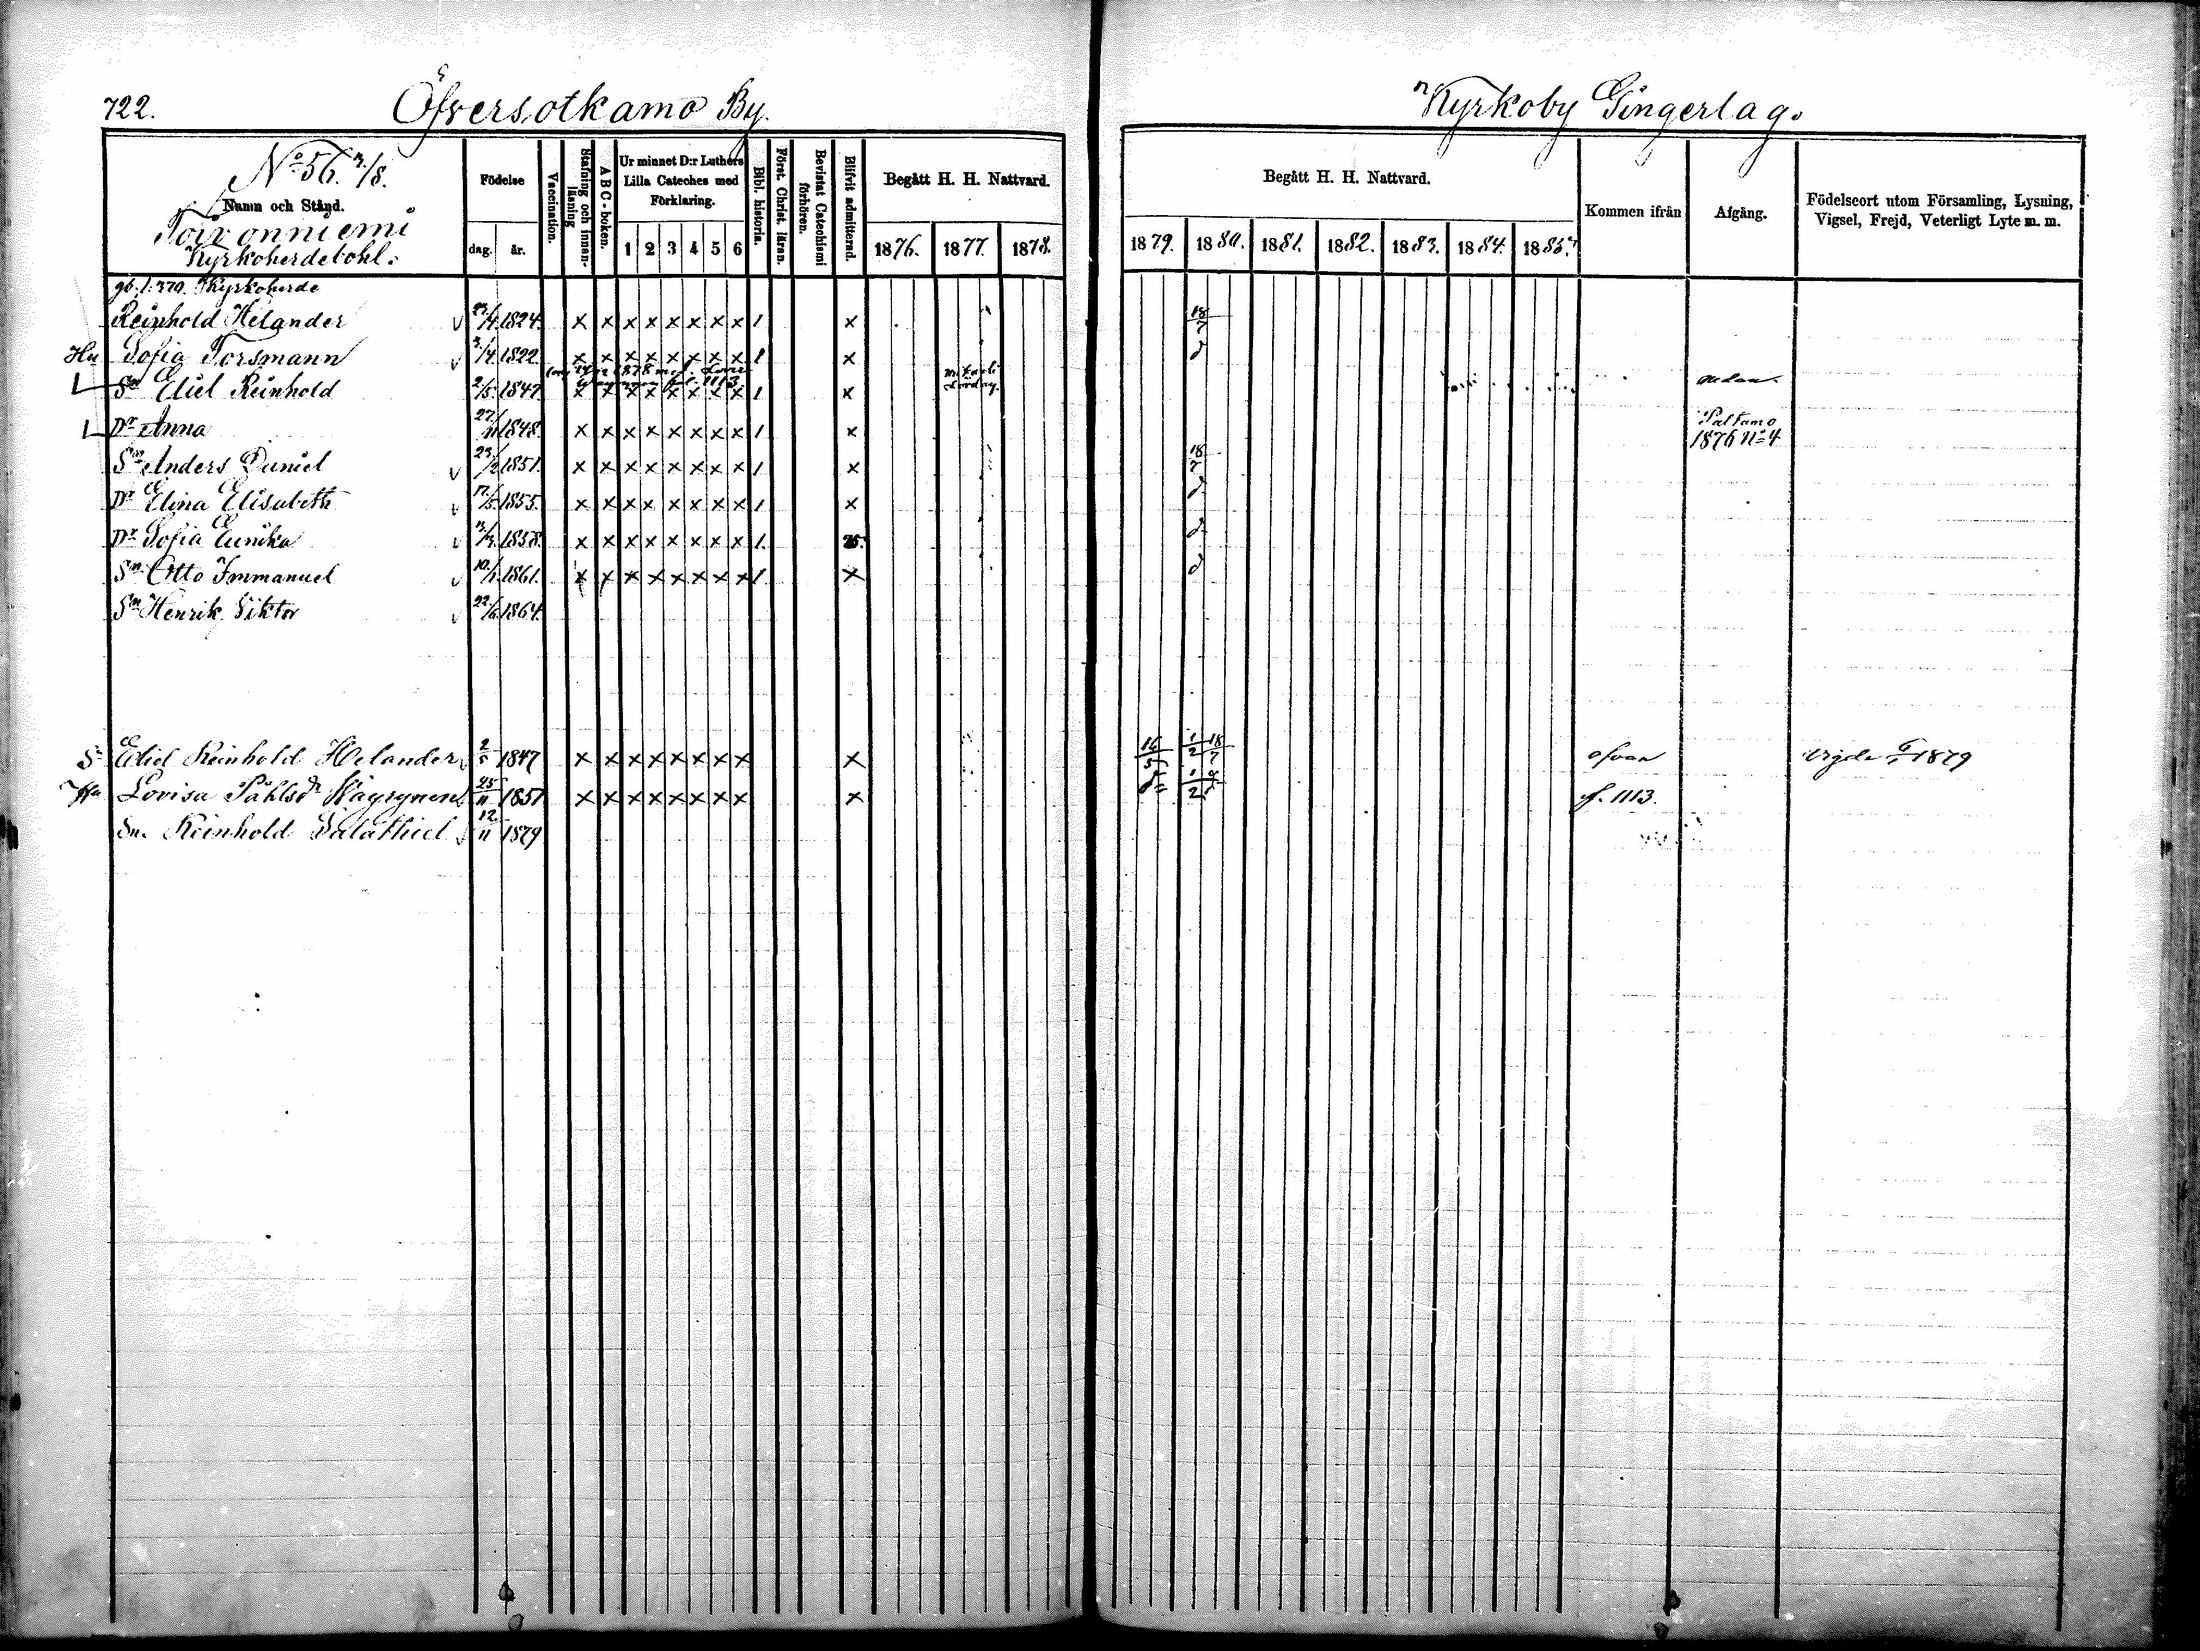 722.
Öfversotkamo By.
Kyrkoby Gingerlag.
No 56. 3/8.
Namn och Stånd.
Toivonniemi
Kyrkoherdebohl.
Födelse
dag. år.
Vaccination.
Stafning och innanläsning
A B C - boken.
Ur minnet D:r Luthers Lilla Cateches med Förklaring.
1 2 3 4 5 6
Bibl. historia.
Först. Christ. läran.
Bevistat Catechismi förhören.
Blifvit admitterad.
Begått H. H. Nattvard.
1876. 1877. 1878.
Begått H. H. Nattvard.
1879. 1880. 1881. 1882. 1883. 1884. 1885.
Kommen ifrån
Afgång.
Födelseort utom Församling, Lysning, Vigsel, Frejd, Veterligt Lyte m. m.
gb. f. 370. Kyrkoherde
Reinhold Helander 1824. x x x x x x x x 1 x 18/7
Hu Sofia Forsmann 3/4 1822. x x x x x x x x 1 x d
1878 1113
Sn Eliel Reinhold 2/5 1847 x x x x x x x x 1 x nedan.
Dr Anna 27/11 1848. x x x x x x x x 1 x Paltamo 1876 No 4
Sn Anders Daniel 23/2 1851. x x x x x x x x 1 x 18/7
Dr Elina Elisabeth 17/5 1855. x x x x x x x x 1 x d
Dr Sofia Eunika 1858. x x x x x x x x 1. 75. d
Sn Otto Immanuel 10/1 1861. x x x x x x x x 1 x d
Sn Henrik Viktor 22/6 1864.
Sn Eliel Reinhold Helander 2/5 1847 x x x x x x x x x 1/2 18/7 ofvan Vigde 1879
Hu Lovisa Påhlsdr Käyrynen 25/11 1851 x x x x x x x x x f. 1113.
Sn. Reinhold Salathiel 12/11 1879